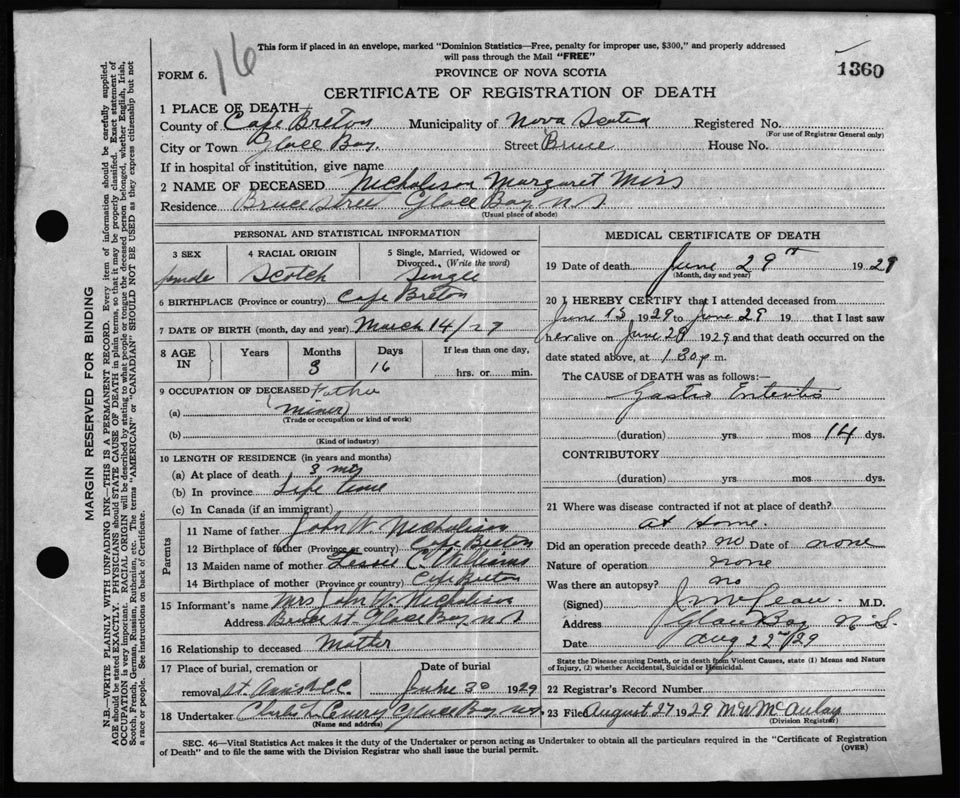 This form if placed in an envelope, marked "Dominion Statistics—Free, penalty for improper use, $300," and properly addressed
will pass through the Mail "FREE"
16
FORM 6.
PROVINCE OF NOVA SCOTIA
1360
CERTIFICATE OF REGISTRATION OF DEATH
1 PLACE OF DEATH—
County of Cape Breton Municipality of Nova Scotia Registered No.
(For use of Registrar General only)
City or Town Glace Bay. Street Bruce House No.
If in hospital or institution, give name
2 NAME OF DECEASED Nicholson Margaret Miss
Residence Bruce Stree Glace Bay N S
(Usual place of abode)
PERSONAL AND STATISTICAL INFORMATION
3 SEX 4 RACIAL ORIGIN 5 Single, Married, Widowed or Divorced, (Write the word)
female Scotch Single
6 BIRTHPLACE (Province or country) Cape Breton
7 DATE OF BIRTH (month, day and year) March 14/29
8 AGE IN Years Months Days If less than one day,
3 16 hrs. or min.
9 OCCUPATION OF DECEASED Father
(a) (miner)
(Trade or occupation or kind of work)
(b)
(Kind of industry)
10 LENGTH OF RESIDENCE (in years and months)
(a) At place of death 3 mos
(b) In province Life time
(c) In Canada (if an immigrant)
Parents
11 Name of father John W. Nicholson
12 Birthplace of father (Province or country) Cape Breton
13 Maiden name of mother Jessie C. Williams
14 Birthplace of mother (Province or country) Cape Breton
15 Informant's name Mrs John W. Nicholson
Address Bruce St. Glace Bay N S
16 Relationship to deceased Mother
17 Place of burial, cremation or removal St. Anns Date of burial June 30 1929
18 Undertaker Glace Bay N.S.
(Name and address)
MEDICAL CERTIFICATE OF DEATH
19 Date of death June 29th 1929
(Month, day and year)
20 I HEREBY CERTIFY that I attended deceased from
June 15 1929 to June 29 19 that I last saw
her alive on June 29 1929 and that death occurred on the
date stated above, at 1.30 p m.
The CAUSE of DEATH was as follows:—
Gastro Enteritis
(duration) yrs. mos 14 dys.
CONTRIBUTORY
(duration) yrs. mos dys.
21 Where was disease contracted if not at place of death?
at Home.
Did an operation precede death? no Date of none
Nature of operation none
Was there an autopsy? no
(Signed) M.D.
Address Glace Bay N.S.
Date Aug 22nd/29
State the Disease causing Death, or in death from Violent Causes, state (1) Means and Nature
of Injury, (2) whether Accidental, Suicidal or Homicidal.
22 Registrar's Record Number
23 Filed August 27 1929 M W McAulay
(Division Registrar)
SEC. 46—Vital Statistics Act makes it the duty of the Undertaker or person acting as Undertaker to obtain all the particulars required in the "Certificate of Registration
of Death" and to file the same with the Division Registrar who shall issue the burial permit.
(OVER)
MARGIN RESERVED FOR BINDING
N.B.—WRITE PLAINLY WITH UNFADING INK—THIS IS A PERMANENT RECORD. Every item of information should be carefully supplied.
AGE should be stated EXACTLY. PHYSICIANS should STATE CAUSE OF DEATH in plain terms, so that it may be properly classified. Exact statement of
OCCUPATION is very important. RACIAL ORIGIN will be described by stating to what people or tongue the deceased person belonged, whether English, Irish,
Scotch, French, German, Russian, Ruthenian, etc. The terms "AMERICAN" or "CANADIAN" SHOULD NOT BE USED as they express citizenship but not
a race or people. See instructions on back of Certificate.